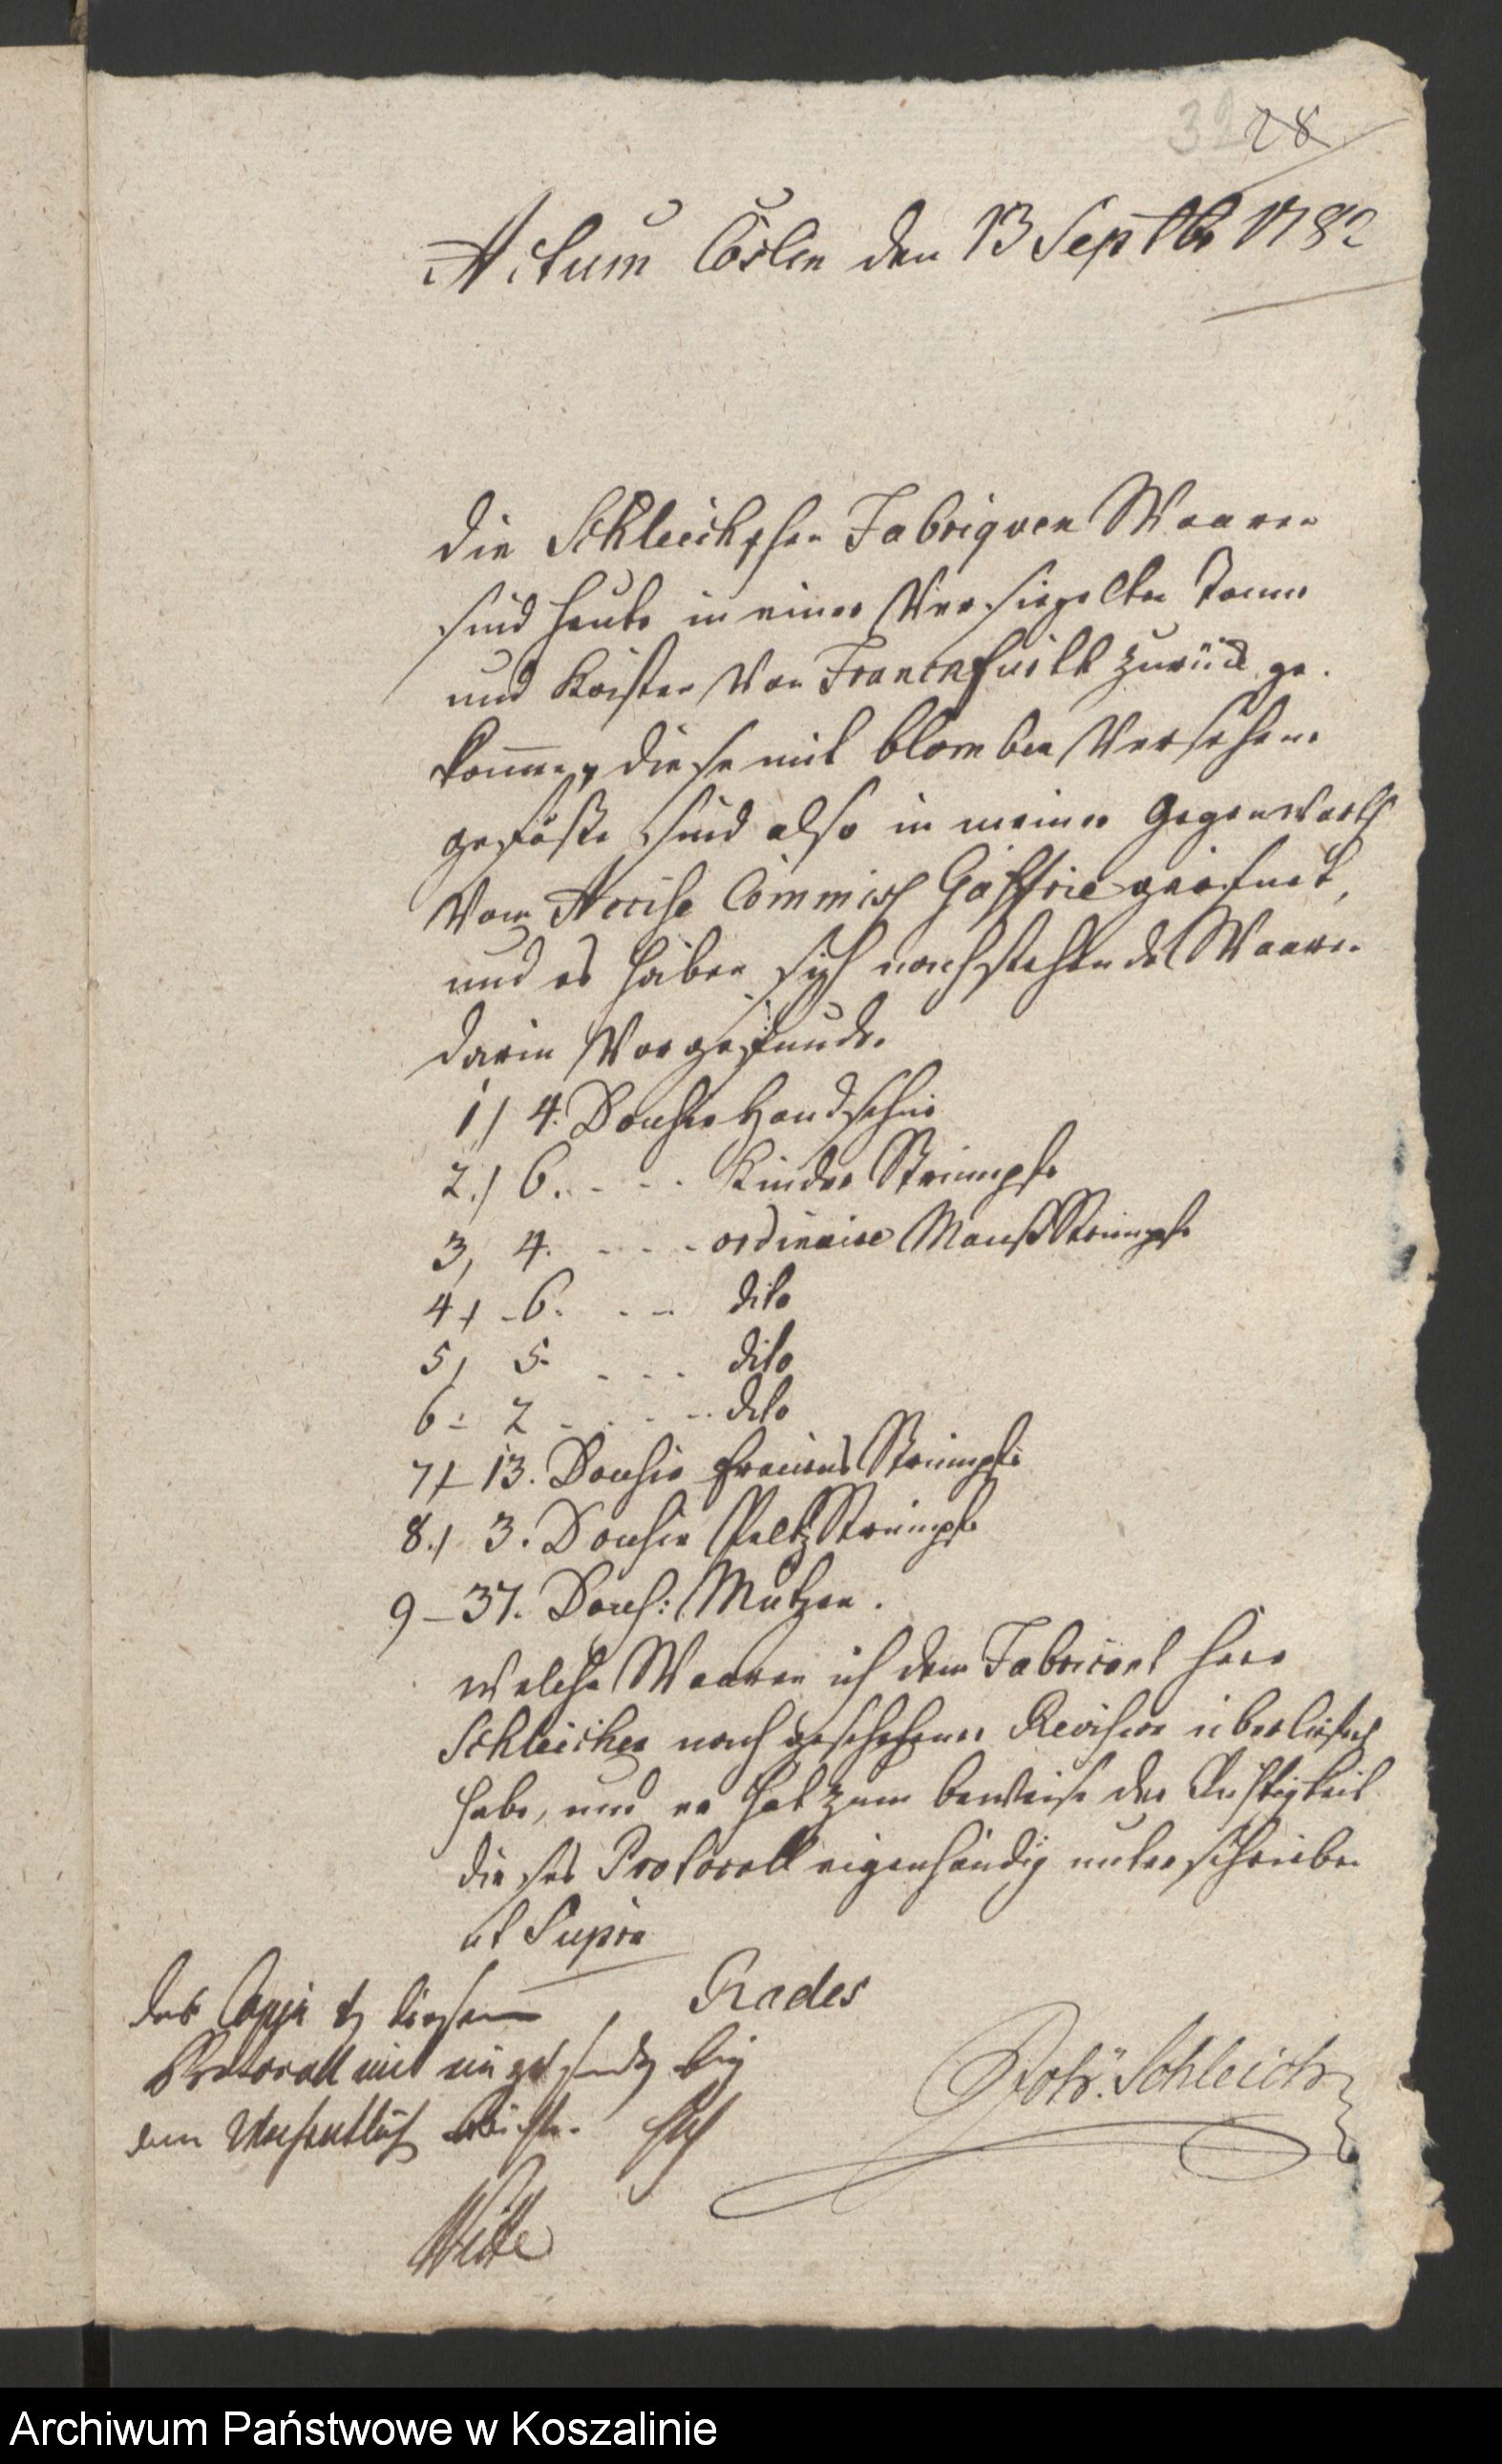 32 28
Actum Cöslin den 13 Septbr 1782
die Schleichschen Fabriquen Waaren
sind heute in einer Versiegelten Tonne
und Kasten von Franckfurth zurück ge-
kommen, diese mit blomben Versehene
gefäße sind also in meiner Gegenwarth
vom Accise Commiss geöfnet,
und es haben sich nachstehende Waaren
darin Vorgefunden
1) 4. Douzin Handschu
2.) 6. - - - Kinder Strümpfe
3) 4. - - - ordinaire Manß Strümpfe
4) 6. - - - dito
5) 5. - - - dito
6 2 - - - dito
7) 13. Douzin frauens Strümpfe
8.) 3. Douzin Peltz Strümpfe
9 - 37. Douz: Mützen.
welche Waaren ich dem Fabricant Herr
Schleicher nach geschehener Revision überliefert
habe, und er hat zum beweise der Richtigkeit
dieses Protocoll eigenhändig unterschrieben
ut Supra
Rades
Schleich
Copia diesem
Protocoll mit
dem
Witte
Archiwum Państwowe w Koszalinie